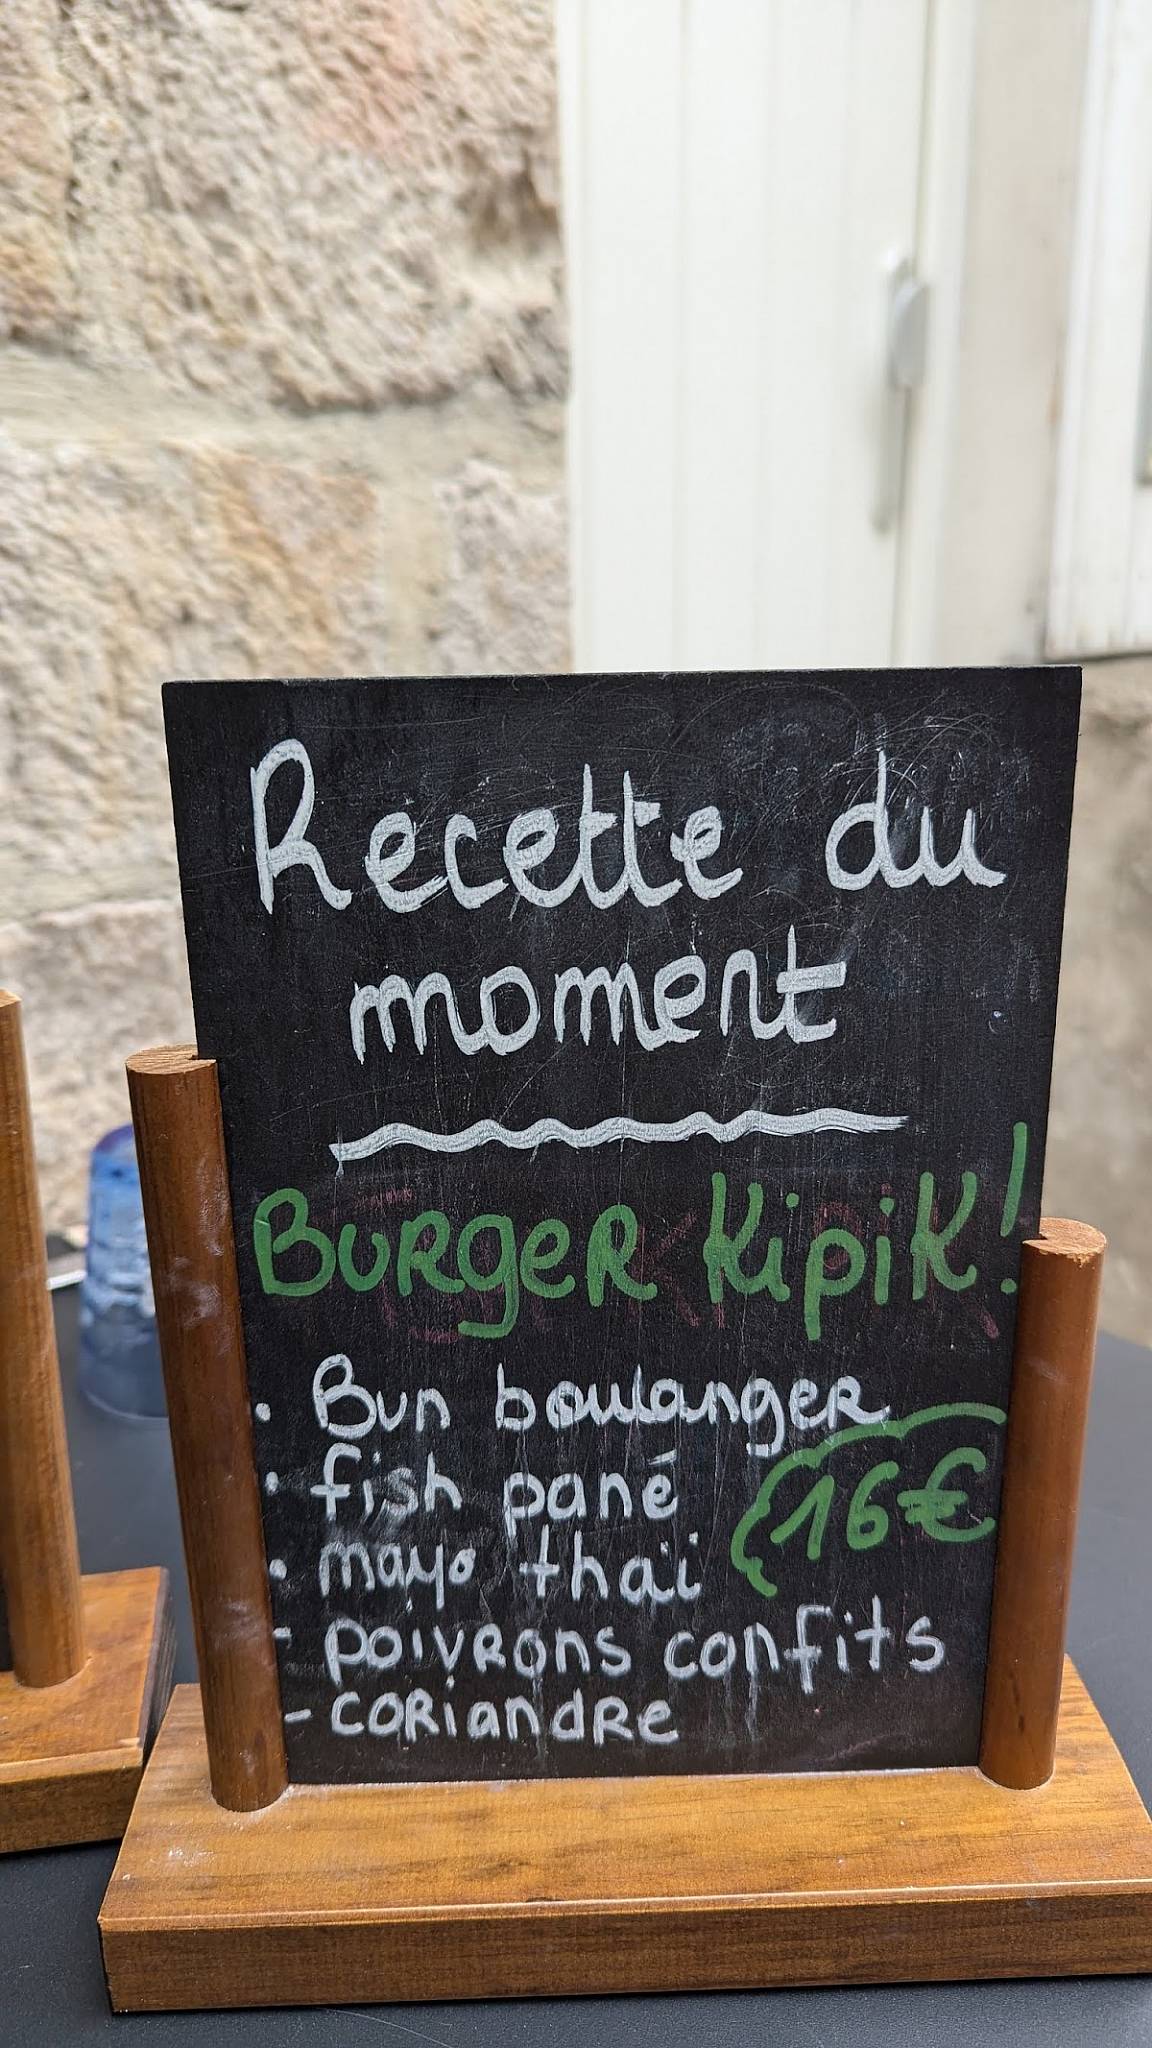 Recette du
moment
Burger Kipik!
• Bun boulanger
• fish pané
16€
• mayo thaï
- poivrons confits
- coriandre